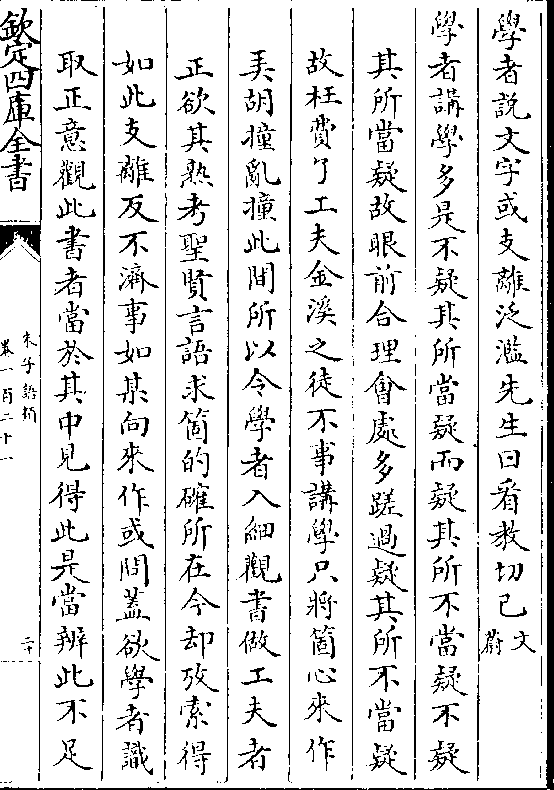 學者説文字或支離泛濫先生曰看教切已文蔚
學者講學多是不疑其所當疑而疑其所不當疑不疑
其所當疑故眼前合理㑹處多蹉過疑其所不當疑
故枉費了工夫金溪之徒不事講學只將箇心來作
弄胡撞亂撞此間所以令學者入細觀書做工夫者
正欲其熟考聖賢言語求箇的確所在今却攷索得
如此支離反不濟事如某向來作或問蓋欲學者識
取正意觀此書者當於其中見得此是當辨此不足
欽定四庫全書
朱子語類
卷一百二十一
二十